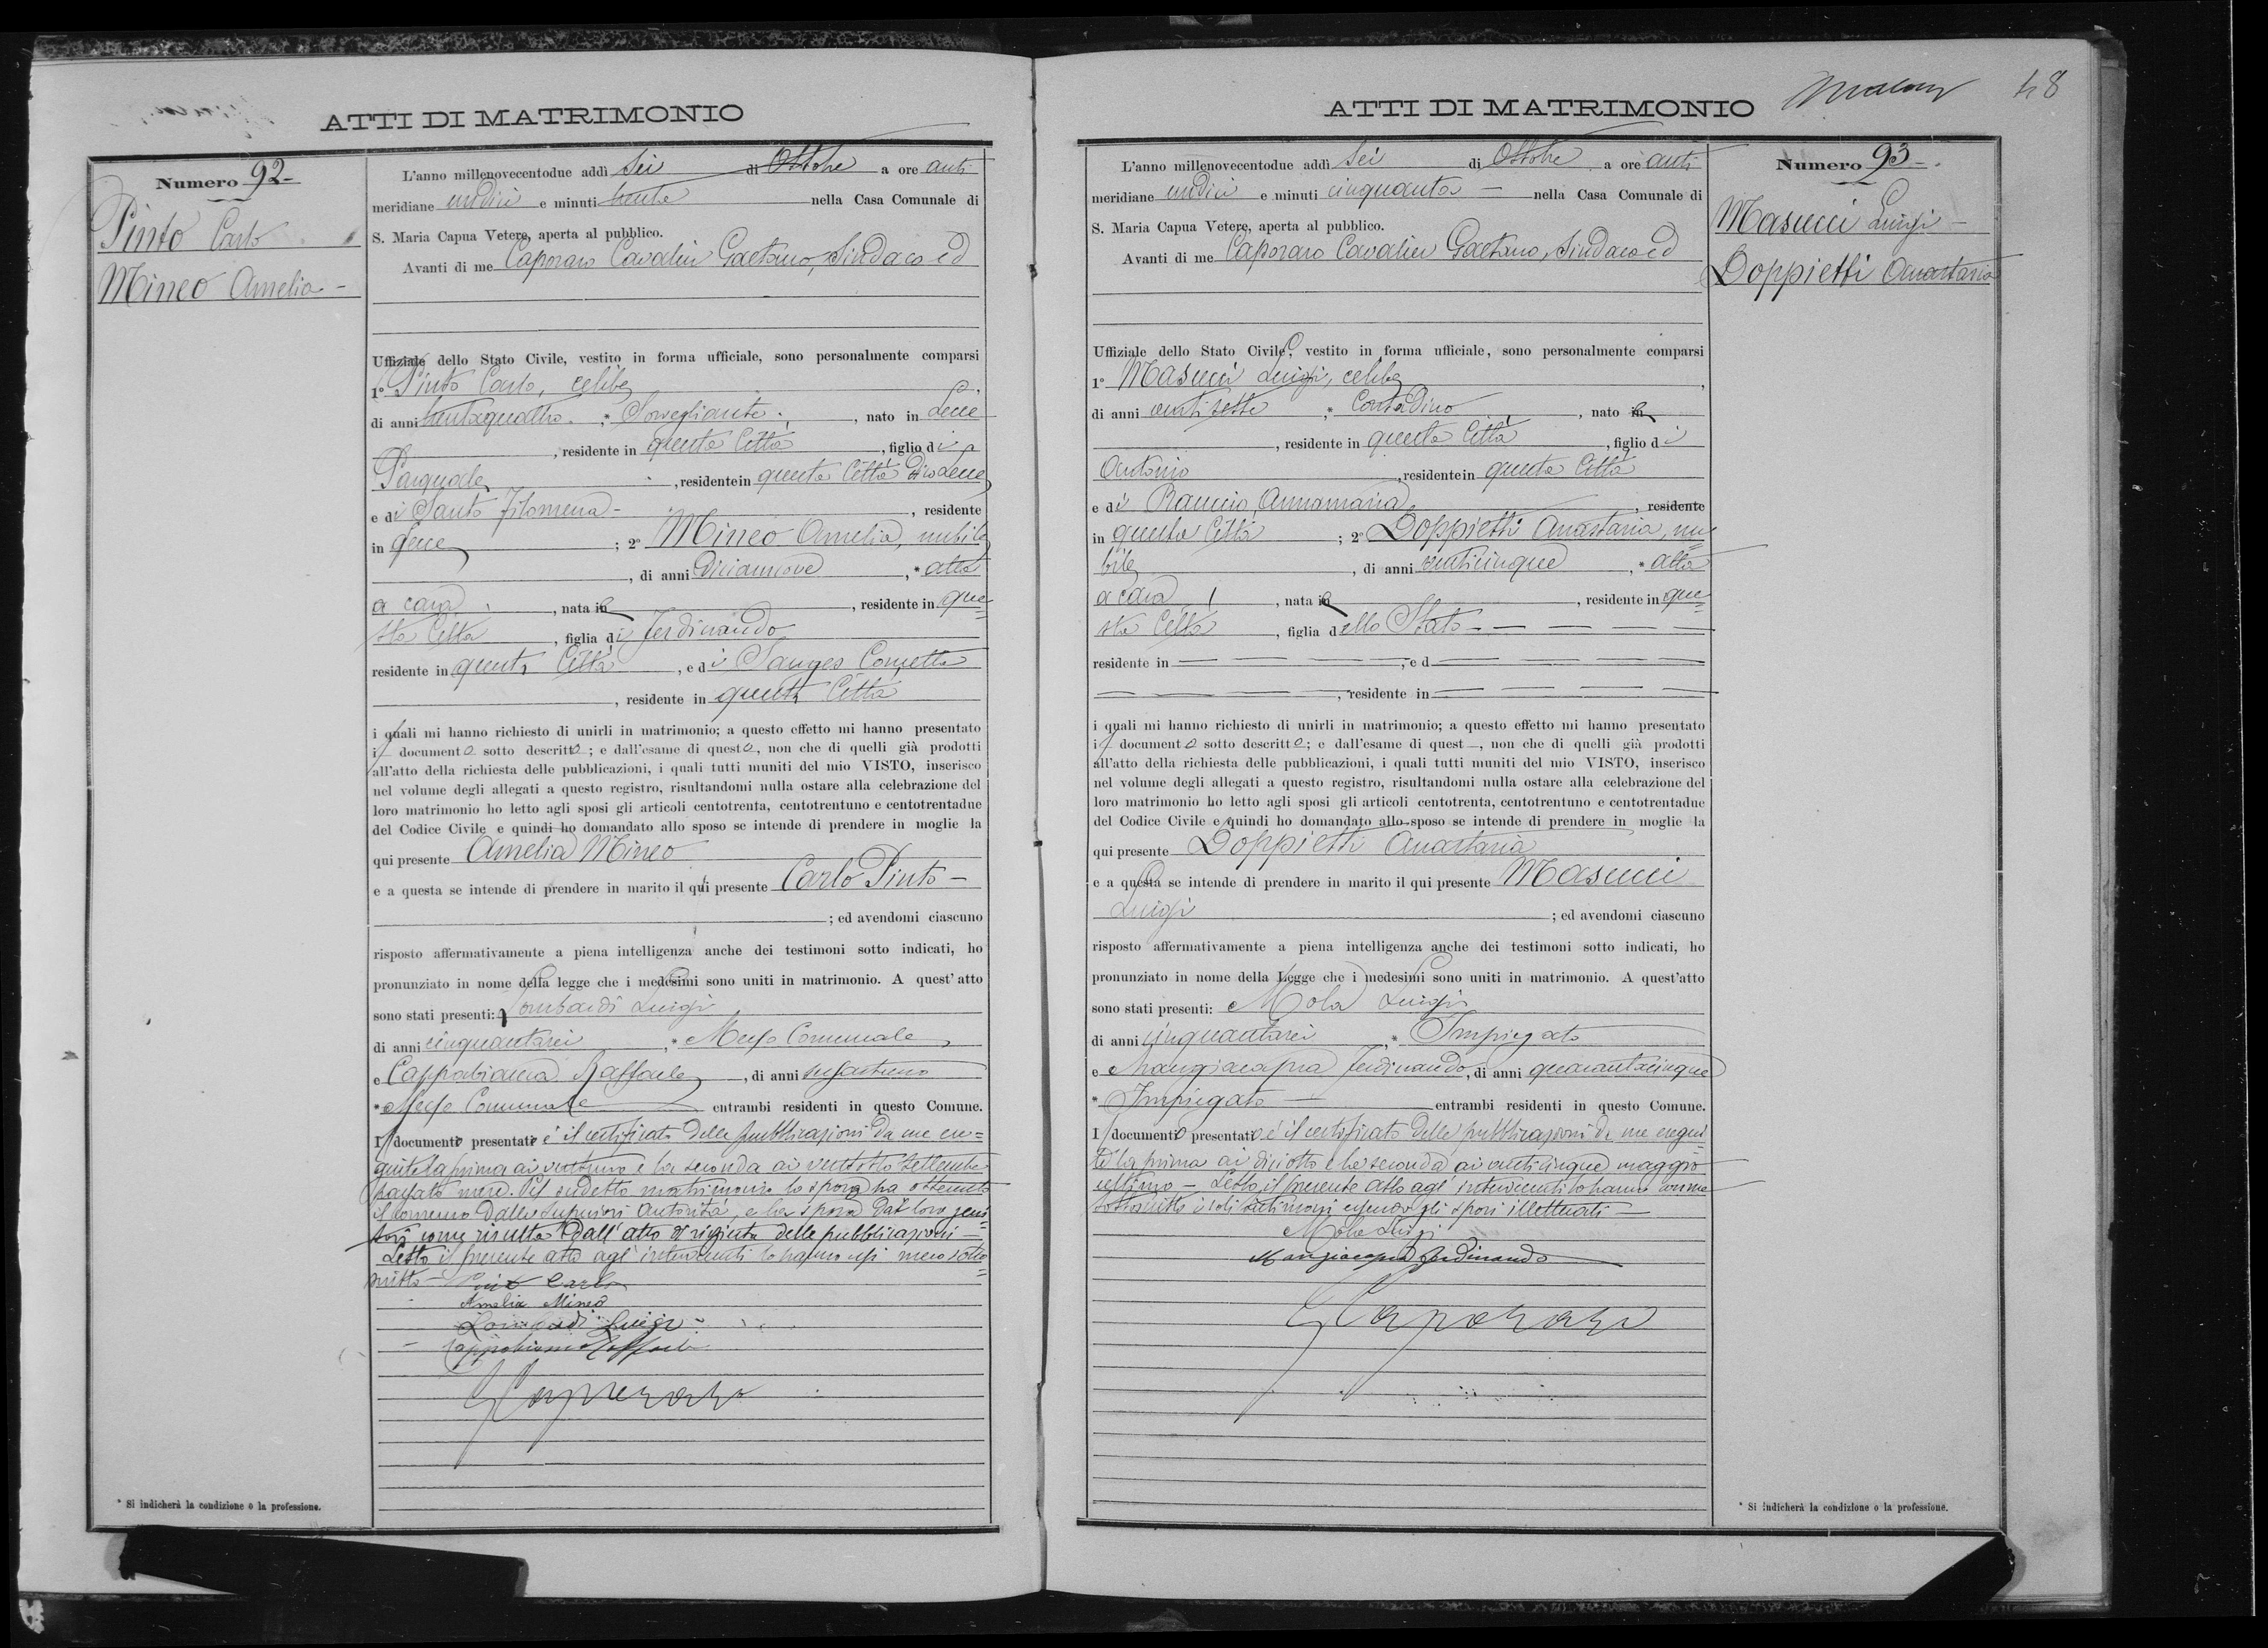 ATTI DI MATRIMONIO
Numero 92-
Pinto Carlo
Mineo Amelia -
L'anno millenovecentodue addì sei di Ottobre a ore anti
meridiane undici e minuti trenta nella Casa Comunale di
S. Maria Capua Vetere, aperta al pubblico.
Avanti di me Caporaso Cavalier Gaetano, Sindaco ed
Uffiziale dello Stato Civile, vestito in forma ufficiale, sono personalmente comparsi
1° Pinto Carlo, celibe,
di anni trentaquattro, * Sorvegliante, nato in Lecce
, residente in questa Città, figlio di
Pasquale, residente in questa Città Lecce
e di Santo Filomena -, residente
in Lecce; 2° Mineo Amelia, nubile
, di anni diciannove, * atta
a casa, nata in, residente in que=
sta Città, figlia di Ferdinando
residente in questa Città, e di Sanges Concetta
, residente in questa Città
i quali mi hanno richiesto di unirli in matrimonio; a questo effetto mi hanno presentato
i documento sotto descritto; e dall'esame di questo, non che di quelli già prodotti
all'atto della richiesta delle pubblicazioni, i quali tutti muniti del mio VISTO, inserisco
nel volume degli allegati a questo registro, risultandomi nulla ostare alla celebrazione del
loro matrimonio ho letto agli sposi gli articoli centotrenta, centotrentuno e centotrentadue
del Codice Civile e quindi ho domandato allo sposo se intende di prendere in moglie la
qui presente Amelia Mineo
e a questa se intende di prendere in marito il qui presente Carlo Pinto -
; ed avendomi ciascuno
risposto affermativamente a piena intelligenza anche dei testimoni sotto indicati, ho
pronunziato in nome della legge che i medesimi sono uniti in matrimonio. A quest' atto
sono stati presenti: Lombardi Luigi
di anni cinquantasei, * Messo Comunale
e Cappabianca Raffaele, di anni sessantuno
* Messo Comunale entrambi residenti in questo Comune.
I documento presentato è il certificato delle pubblicazioni da me ese=
guite la prima ai ventuno e la seconda ai ventotto settembre
passato mese. Pel sudetto matrimonio lo sposo ha ottenuto
il consenso dalle Superiori Autorità, e la sposa dai loro geni=
tori come risulta dall'atto di richiesta delle pubblicazioni -
Letto il presente atto agl' intervenuti lo hanno essi meco sotto=
scritto - Pinto Carlo
Amelia Mineo
Lombardi Luigi
Cappabianca Raffaele
G Caporaso
* Si indicherà la condizione o la professione.
48
ATTI DI MATRIMONIO
Numero 93-
Masucci Luigi -
Doppietti Anastasia
L'anno millenovecentodue addì sei di Ottobre a ore anti
meridiane undici e minuti cinquanta - nella Casa Comunale di
S. Maria Capua Vetere, aperta al pubblico.
Avanti di me Caporaso Cavalier Gaetano, Sindaco ed
Uffiziale dello Stato Civile, vestito in forma ufficiale, sono personalmente comparsi
1° Masucci Luigi, celibe,
di anni ventisette, * Contadino, nato in
, residente in questa Città, figlio di
Antonio, residente in questa Città
e di Rauccio Annamaria, residente
in questa Città; 2° Doppietti Anastasia, nu=
bile, di anni venticinque, * atta
a casa, nata in, residente in que=
sta Città, figlia dello Stato -
residente in, e d
, residente in
i quali mi hanno richiesto di unirli in matrimonio; a questo effetto mi hanno presentato
i documento sotto descritto; e dall'esame di quest, non che di quelli già prodotti
all'atto della richiesta delle pubblicazioni, i quali tutti muniti del mio VISTO, inserisco
nel volume degli allegati a questo registro, risultandomi nulla ostare alla celebrazione del
loro matrimonio ho letto agli sposi gli articoli centotrenta, centotrentuno e centotrentadue
del Codice Civile e quindi ho domandato allo sposo se intende di prendere in moglie la
qui presente Doppietti Anastasia
e a questa se intende di prendere in marito il qui presente Masucci
Luigi; ed avendomi ciascuno
risposto affermativamente a piena intelligenza anche dei testimoni sotto indicati, ho
pronunziato in nome della Legge che i medesimi sono uniti in matrimonio. A quest'atto
sono stati presenti: Mola Luigi
di anni cinquantasei, * Impiegato
e Mangiacapra Ferdinando, di anni quarantacinque
* Impiegato - entrambi residenti in questo Comune.
I documento presentato è il certificato delle pubblicazioni da me esegui=
te la prima ai diciotto e la seconda ai venticinque maggio
ultimo - Letto il presente atto agl' intervenuti lo hanno con me
sottoscritto i soli testimoni essendo gli sposi illetterati -
Mola Luigi
Mangiacapra Ferdinando
G Caporaso
* Si indicherà la condizione o la professione.